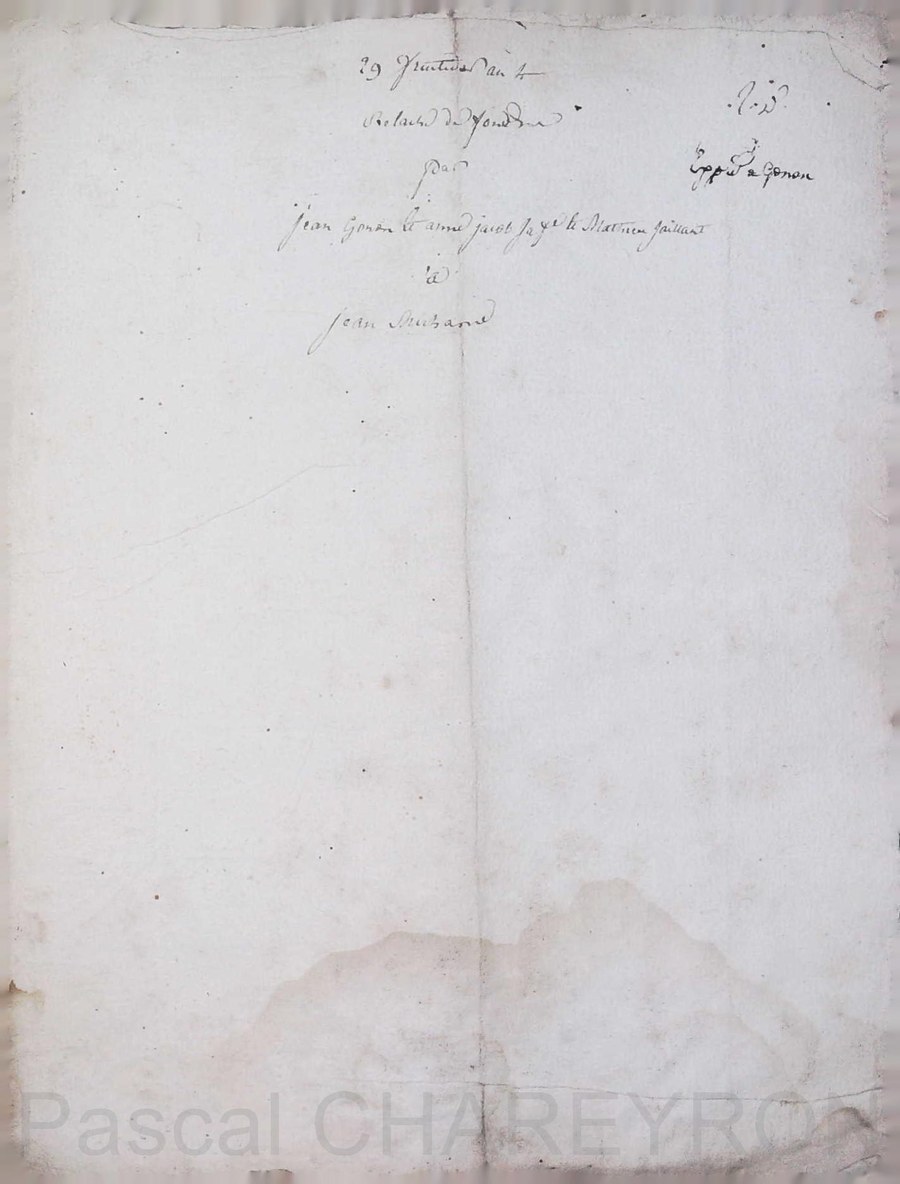 29 fructidor an 4
Relache de fond
par
jean Gonon et anne jacob sa fe et Mathieu faillant
à
jean
a Gonon
Pascal CHAREYRON